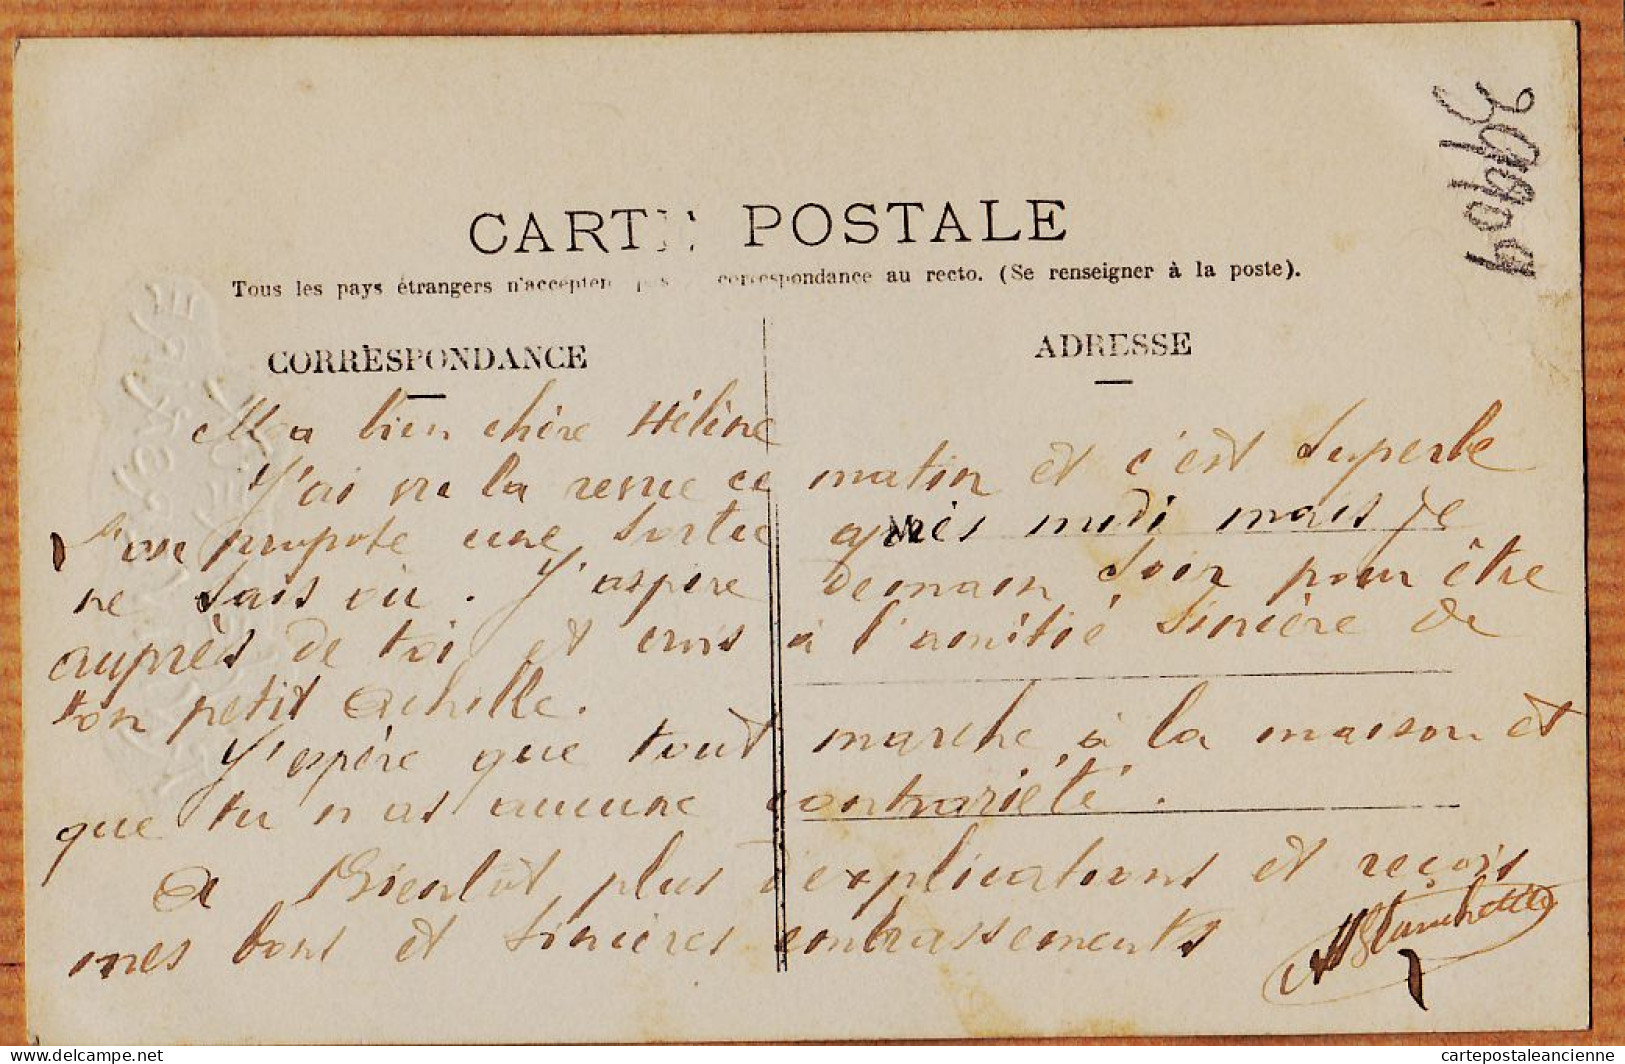 CARTE POSTALE
Tous les pays étrangers n'acceptent pas la correspondance au recto. (Se renseigner à la poste).
CORRESPONDANCE
ADRESSE
Ma bien chère Hélène
J'ai vu la revue ce matin et c'est superbe
propose une sortie après midi mais je
ne sais où. J'aspire demain soir pour être
auprès de toi et crois à l'amitié sincère de
ton petit Achille.
J'espère que tout marche à la maison et
que tu n as aucune contrariété.
A Bientôt plus d'explications et reçois
mes bons et sincères embrassements
delcampe.net
cartepostaleancienne